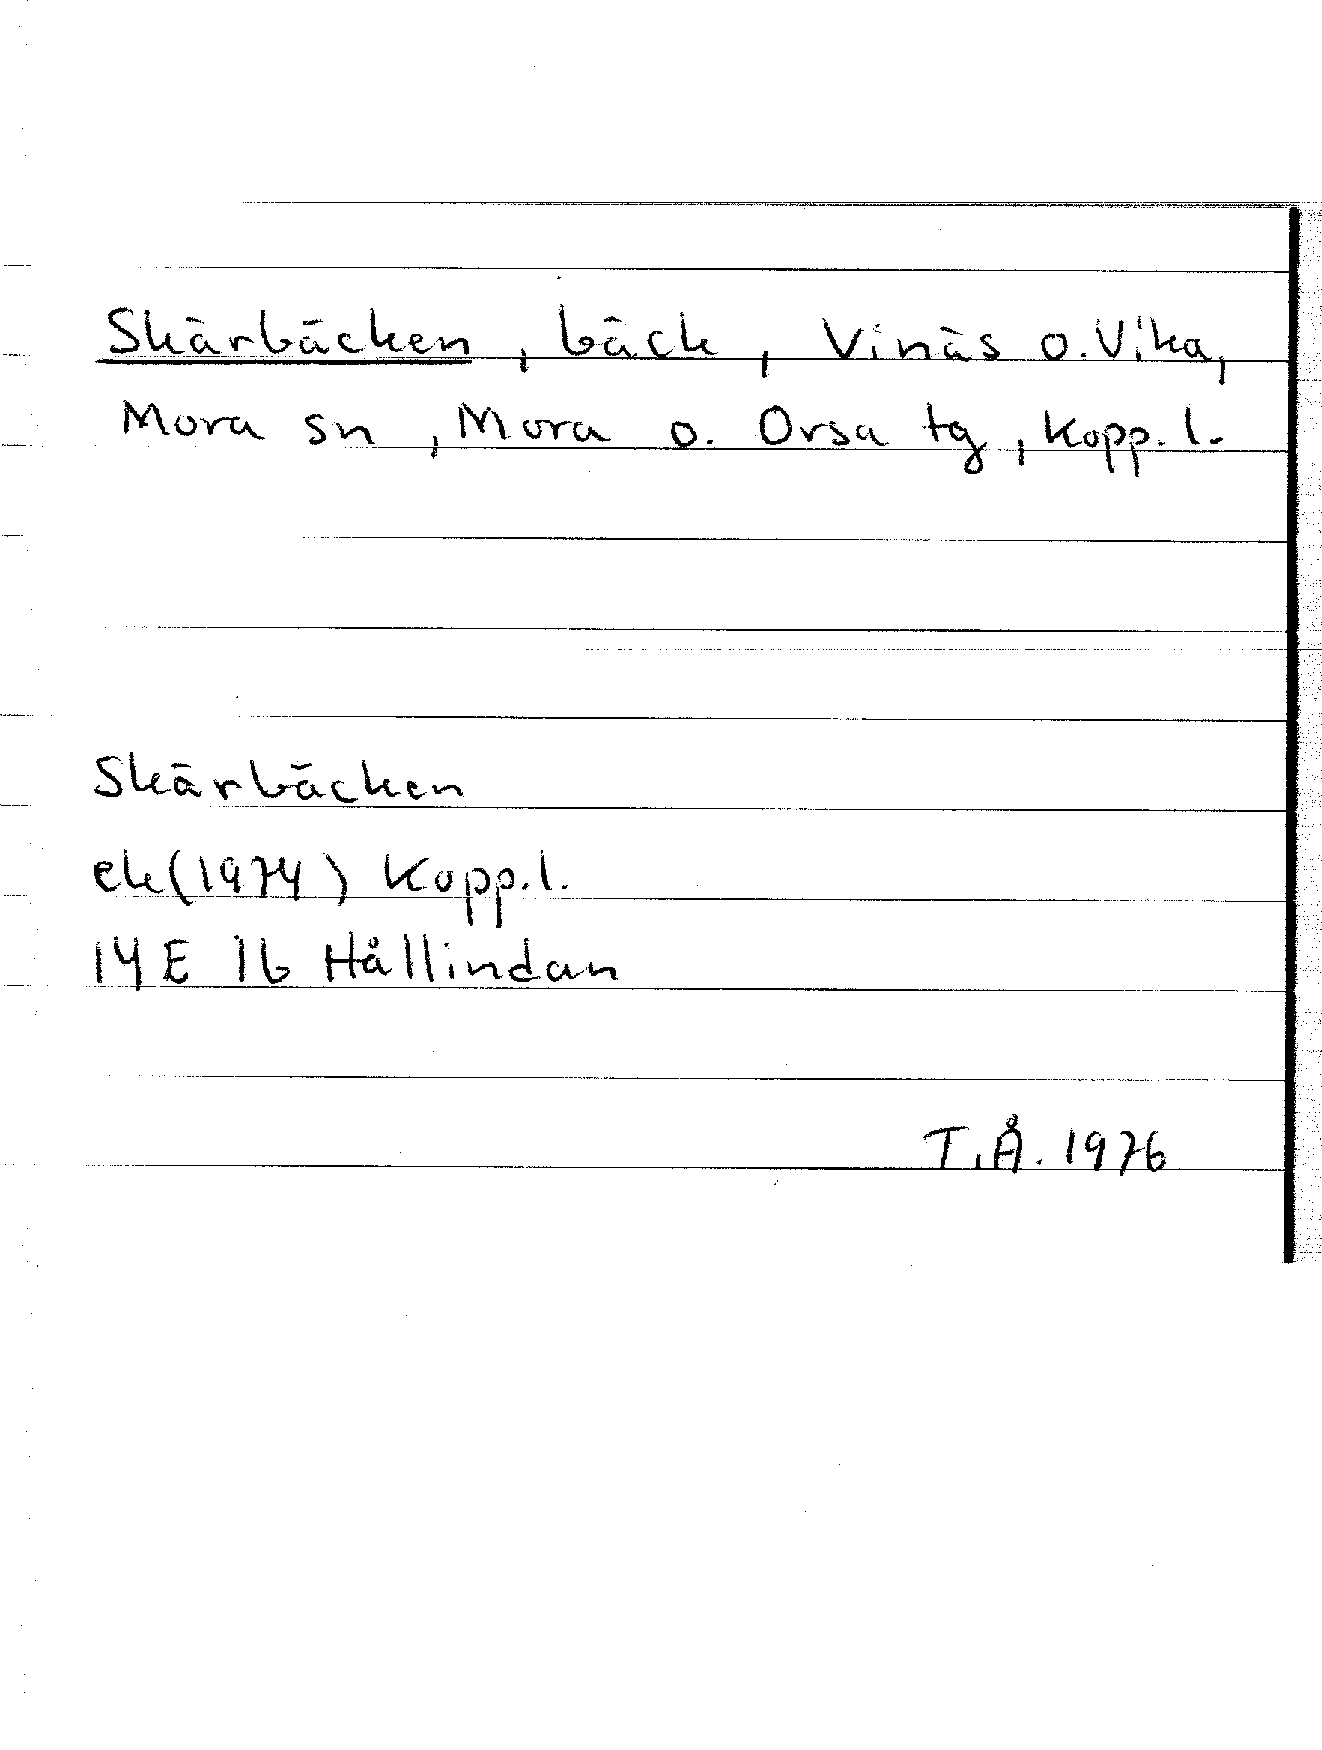 Skärbäcken, bäck, Vinäs o. Vika,
Mora sn, Mora o. Orsa tg, Kopp. l.
Skärbäcken
ek (1974) Kopp. l.
14E 1b Hållindan
T.Å. 1976